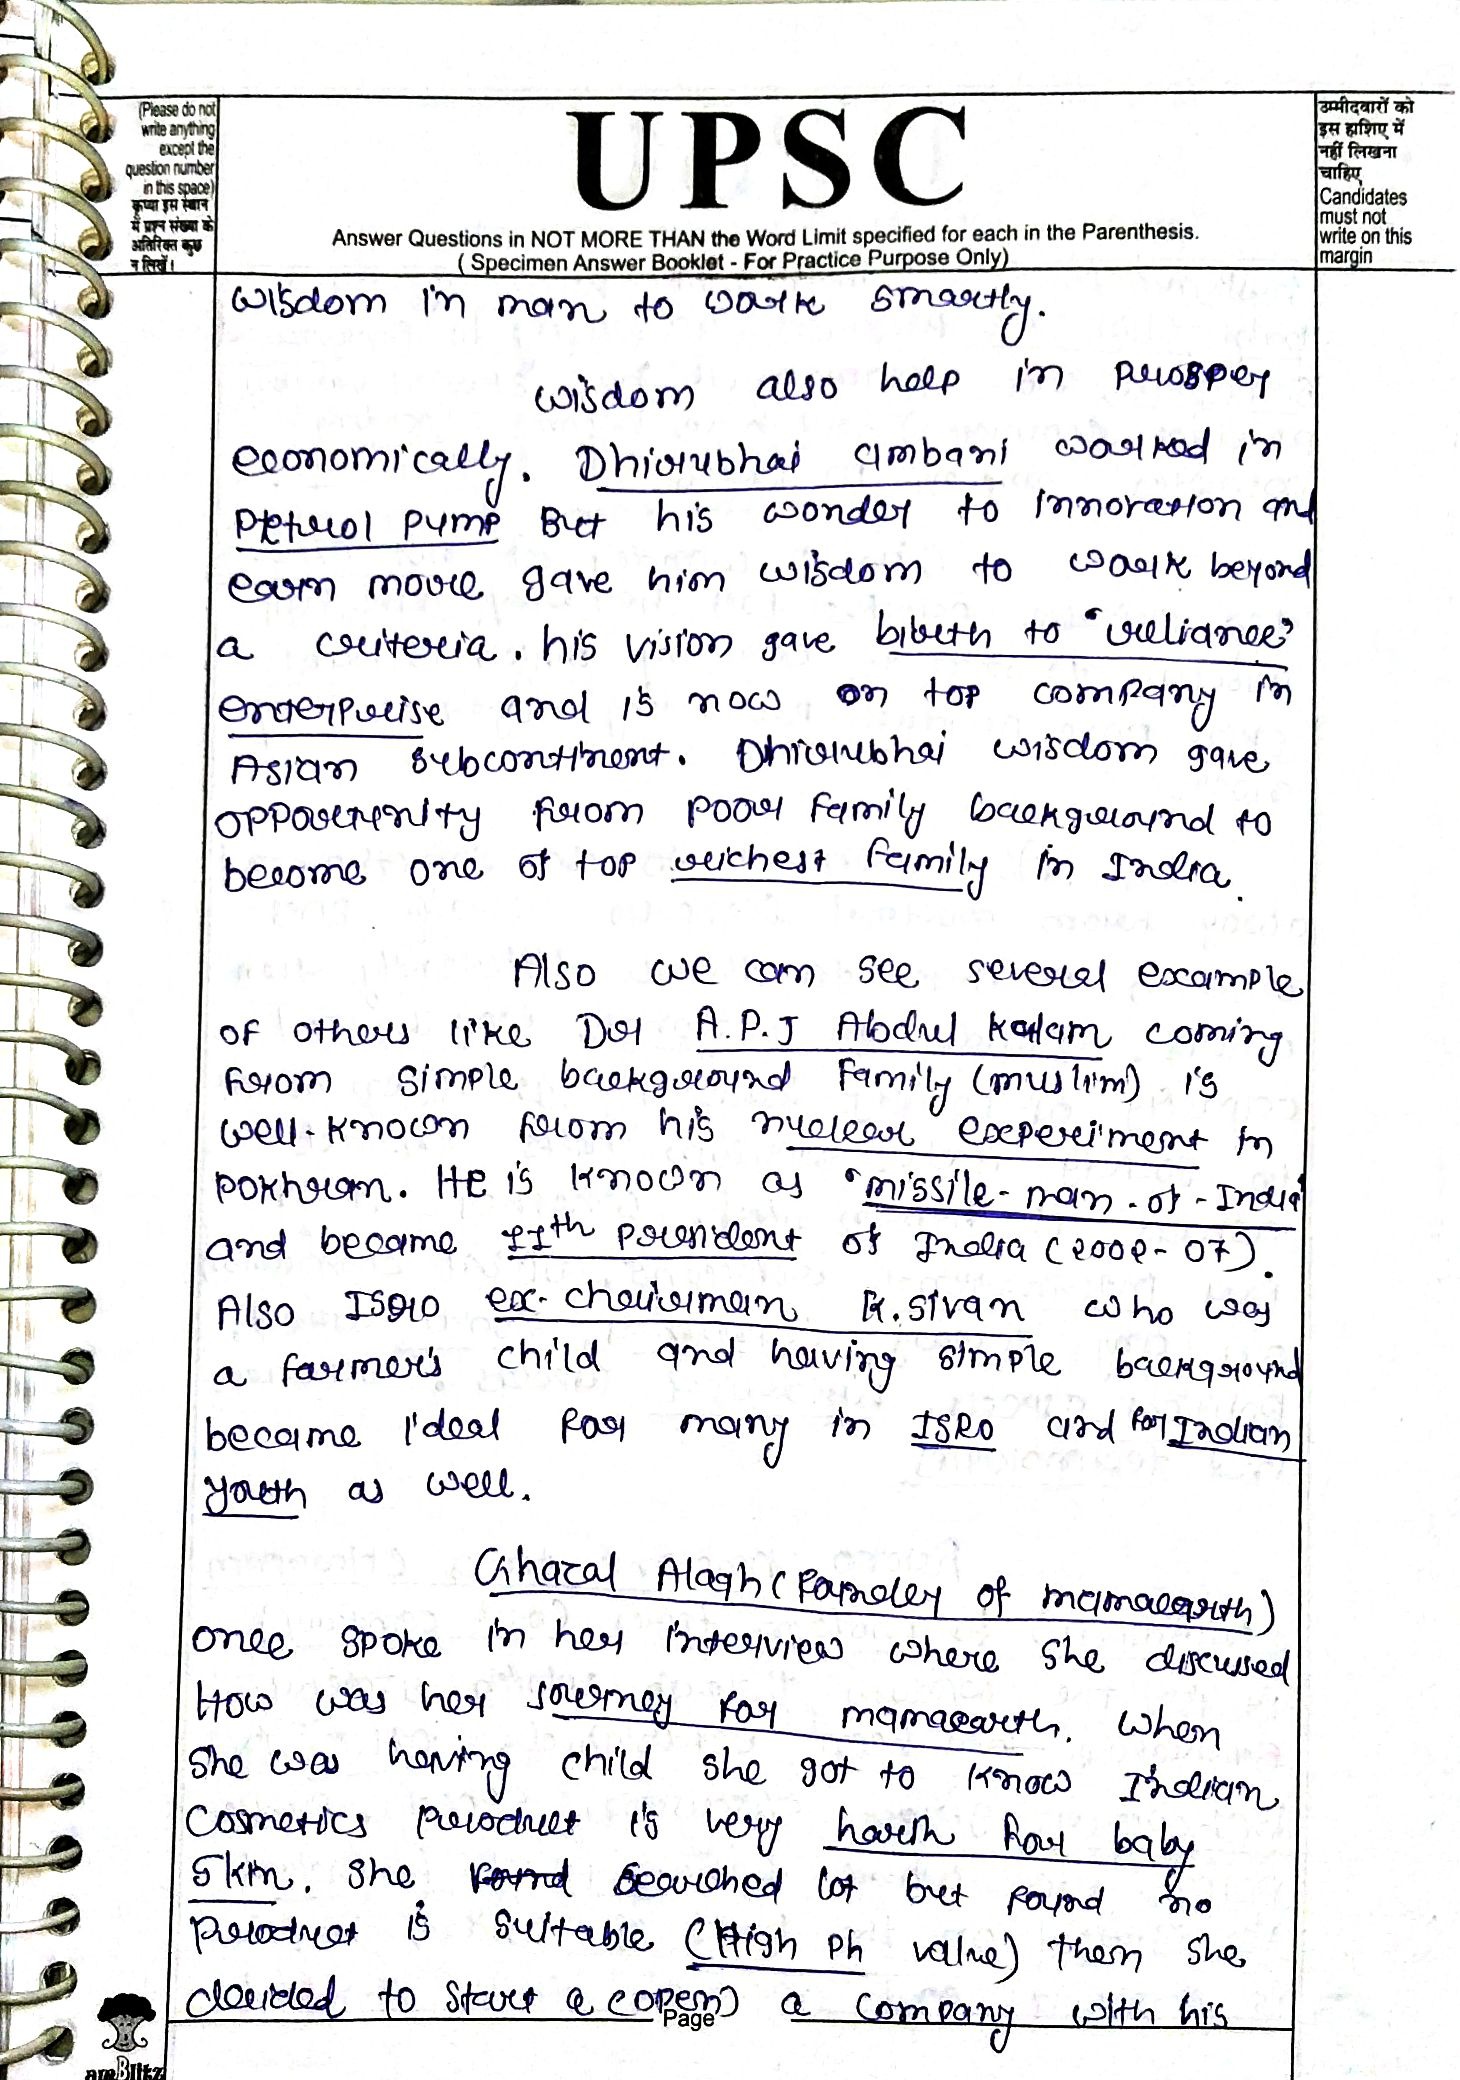 (Please do not
write anything
except the
question number
in this space)
कृपया इस स्थान
में प्रश्न संख्या के
अतिरिक्त कुछ
न लिखें।
UPSC
Answer Questions in NOT MORE THAN the Word Limit specified for each in the Parenthesis.
( Specimen Answer Booklet - For Practice Purpose Only)
उम्मीदवारों को
इस हाशिए में
नहीं लिखना
चाहिए
Candidates
must not
write on this
margin
wisdom in man to work smartly.
wisdom also help in prosper
economically. Dhirubhai ambani worked in
Petrol pump But his wonder to innovation and
earn more gave him wisdom to work beyond
a criteria. his vision gave birth to 'reliance'
enterprise and is now on top company in
Asian subcontinent. Dhirubhai wisdom gave
opportunity from poor family background to
become one of top richest family in India.
Also we can see several example
of others like Dr A.P.J Abdul Kalam coming
from simple background family (muslim) is
well-known from his nuclear experiment in
pokhran. He is known as 'missile-man-of-India'
and became 11th president of India (2002-07).
Also ISRO ex-chairman K.Sivan who was
a farmer's child and having simple background
became ideal for many in ISRO and for Indian
youth as well.
Ghazal Alagh (Founder of mamaearth)
once spoke in her interview where she discussed
How was her journey for mamaearth. When
she was having child she got to know Indian
Cosmetics product is very harsh for baby
skin. She found searched lot but found no
product is suitable (High Ph value) then she
decided to start a (open) a company with his
Page